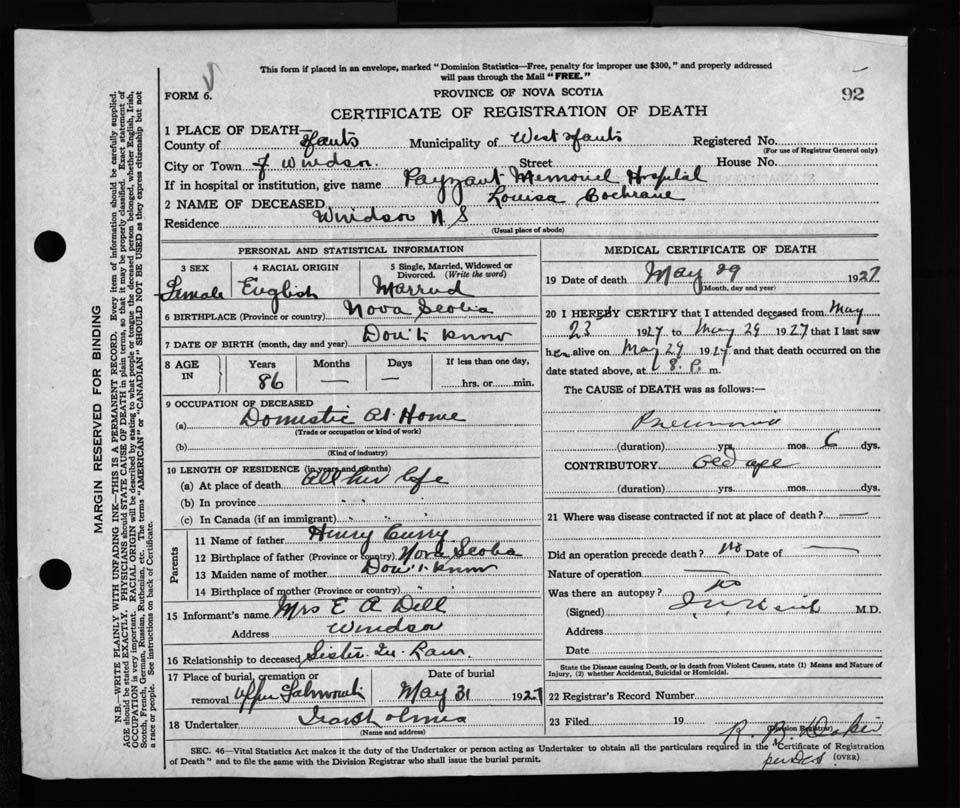 This form if placed in an envelope, marked "Dominion Statistics—Free, penalty for improper use $300," and properly addressed
will pass through the Mail "FREE."
FORM 6.
PROVINCE OF NOVA SCOTIA
92
CERTIFICATE OF REGISTRATION OF DEATH
1 PLACE OF DEATH—
County of Hants Municipality of West Hants Registered No.
(For use of Registrar General only)
City or Town of Windsor. Street House No.
If in hospital or institution, give name Payzant Memorial Hospital
2 NAME OF DECEASED Louisa Cochrane
Residence Windsor N S
(Usual place of abode)
PERSONAL AND STATISTICAL INFORMATION
3 SEX 4 RACIAL ORIGIN 5 Single, Married, Widowed or
Divorced. (Write the word)
Female English Married
6 BIRTHPLACE (Province or country) Nova Scotia
7 DATE OF BIRTH (month, day and year) Don't know
8 AGE IN Years Months Days If less than one day,
86 — — hrs. or min.
9 OCCUPATION OF DECEASED
(a) Domestic At Home
(Trade or occupation or kind of work)
(b)
(Kind of industry)
10 LENGTH OF RESIDENCE (in years and months)
(a) At place of death all her life
(b) In province " "
(c) In Canada (if an immigrant) " "
Parents
11 Name of father Henry Curry
12 Birthplace of father (Province or country) Nova Scotia
13 Maiden name of mother Don't know
14 Birthplace of mother (Province or country) " "
15 Informant's name Mrs E A Dill
Address Windsor
16 Relationship to deceased Sister In Law
17 Place of burial, cremation or Date of burial
removal Upper Falmouth May 31 1927
18 Undertaker
(Name and address)
MEDICAL CERTIFICATE OF DEATH
19 Date of death May 29 1927
(Month, day and year)
20 I HEREBY CERTIFY that I attended deceased from May
23 1927 to May 29 1927 that I last saw
her alive on May 29 1927 and that death occurred on the
date stated above, at 8. P. m.
The CAUSE of DEATH was as follows:
Pneumonia
(duration) yrs. mos. 6 dys.
CONTRIBUTORY Old age
(duration) yrs. mos. dys.
21 Where was disease contracted if not at place of death? —
Did an operation precede death? no Date of —
Nature of operation —
Was there an autopsy? No
(Signed) M.D.
Address
Date
State the Disease causing Death, or in death from Violent Causes, state (1) Means and Nature of
Injury, (2) whether Accidental, Suicidal or Homicidal.
22 Registrar's Record Number
23 Filed 19
(Division Registrar)
SEC. 46—Vital Statistics Act makes it the duty of the Undertaker or person acting as Undertaker to obtain all the particulars required in the "Certificate of Registration
of Death" and to file the same with the Division Registrar who shall issue the burial permit.
(OVER)
MARGIN RESERVED FOR BINDING
N.B.—WRITE PLAINLY WITH UNFADING INK—THIS IS A PERMANENT RECORD. Every item of information should be carefully supplied.
AGE should be stated EXACTLY. PHYSICIANS should STATE CAUSE OF DEATH in plain terms, so that it may be properly classified. Exact statement of
OCCUPATION is very important. RACIAL ORIGIN will be described by stating to what people or tongue the deceased person belonged, whether English, Irish,
Scotch, French, German, Russian, Ruthenian, etc. The terms "AMERICAN" or "CANADIAN" SHOULD NOT BE USED as they express citizenship but not
a race or people. See instructions on back of Certificate.